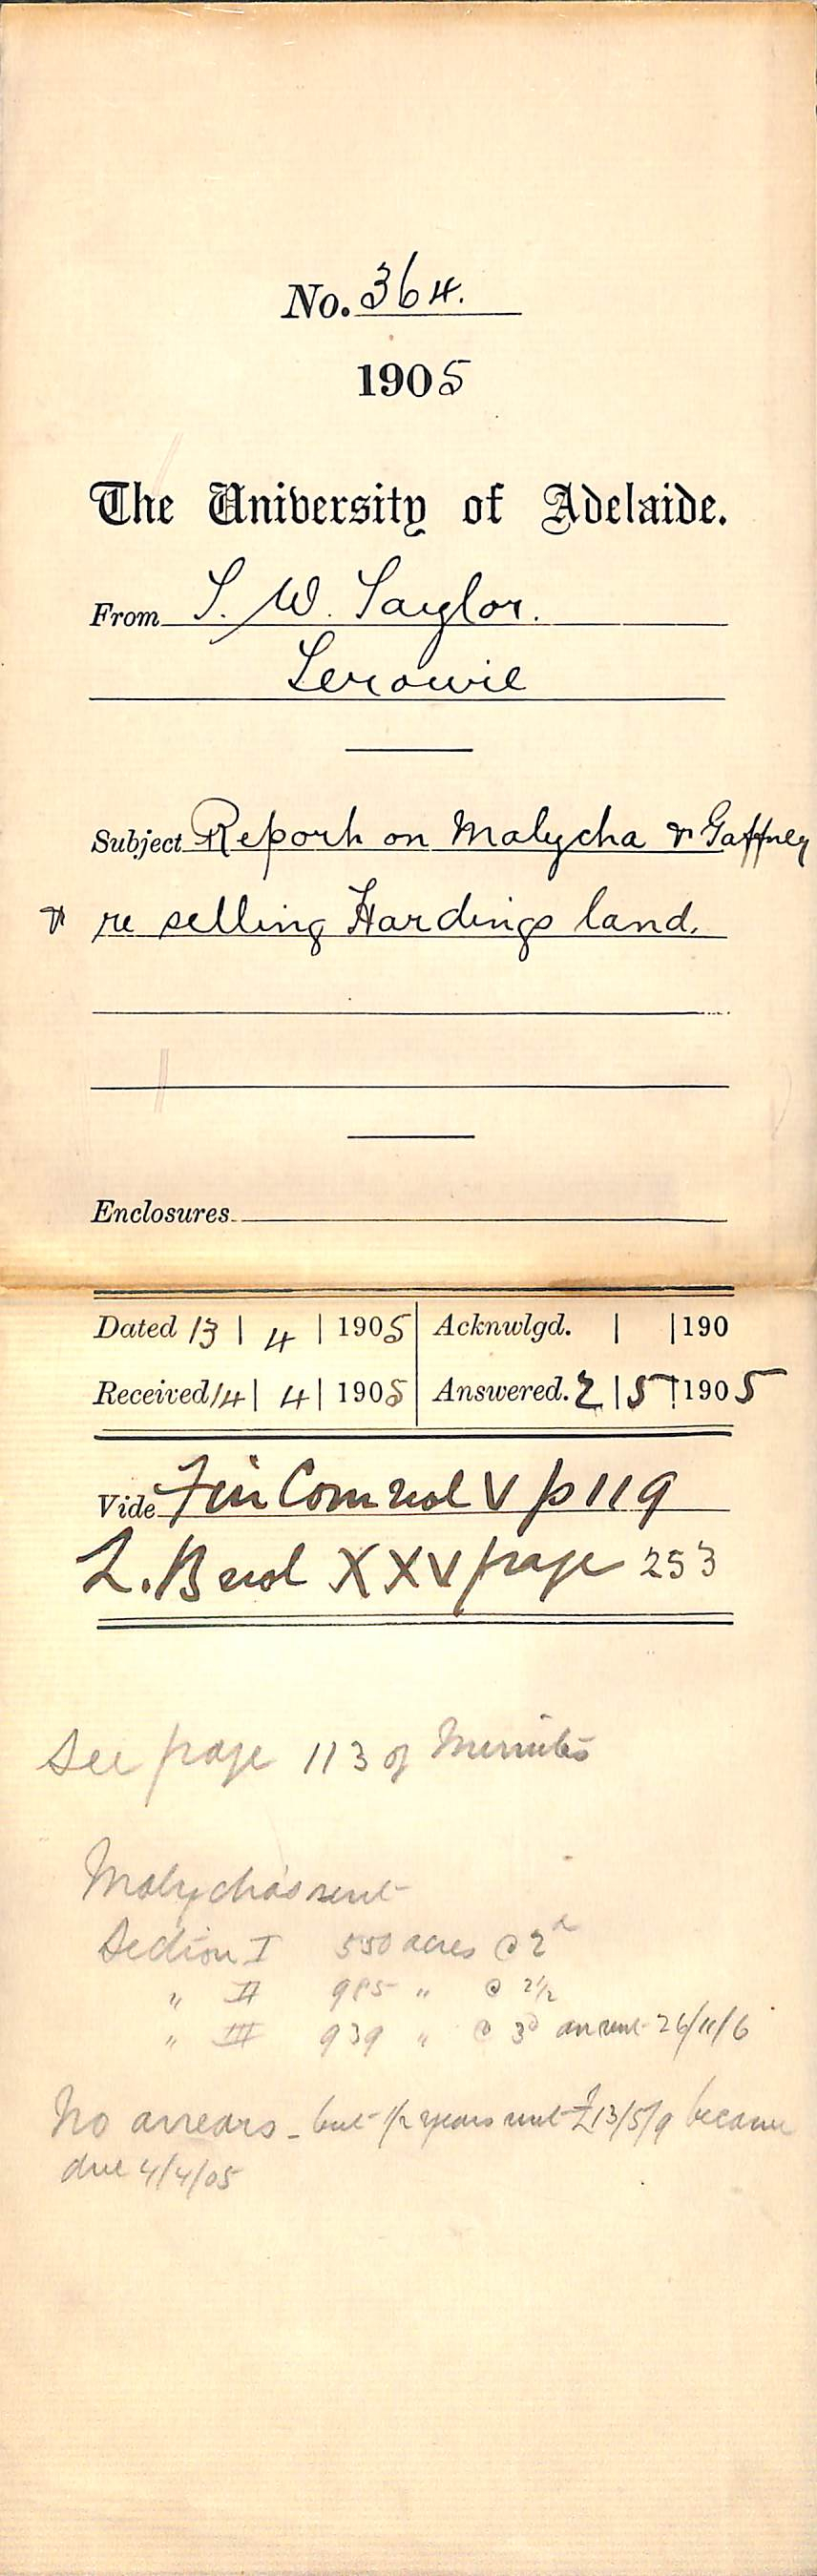 No. 364.
1905
The University of Adelaide.
From T. W. Taylor.
Terowie
Subject Report on Malycha & Gaffney
& re selling Hardings land.
Enclosures
Dated 13 | 4 | 1905 Acknwlgd. | | 190
Received 14 | 4 | 1905 Answered. 2 | 5 | 1905
Vide Fin Com vol V p 119
L.B vol XXV page 253
See page 113 of Minutes
Malycha's rent
Section I 550 acres @ 2d
" II 985 " @ 2½
" III 939 " @ 3d an rent 26/11/6
No arrears - but ½ years rent £13/5/9 became
due 4/4/05